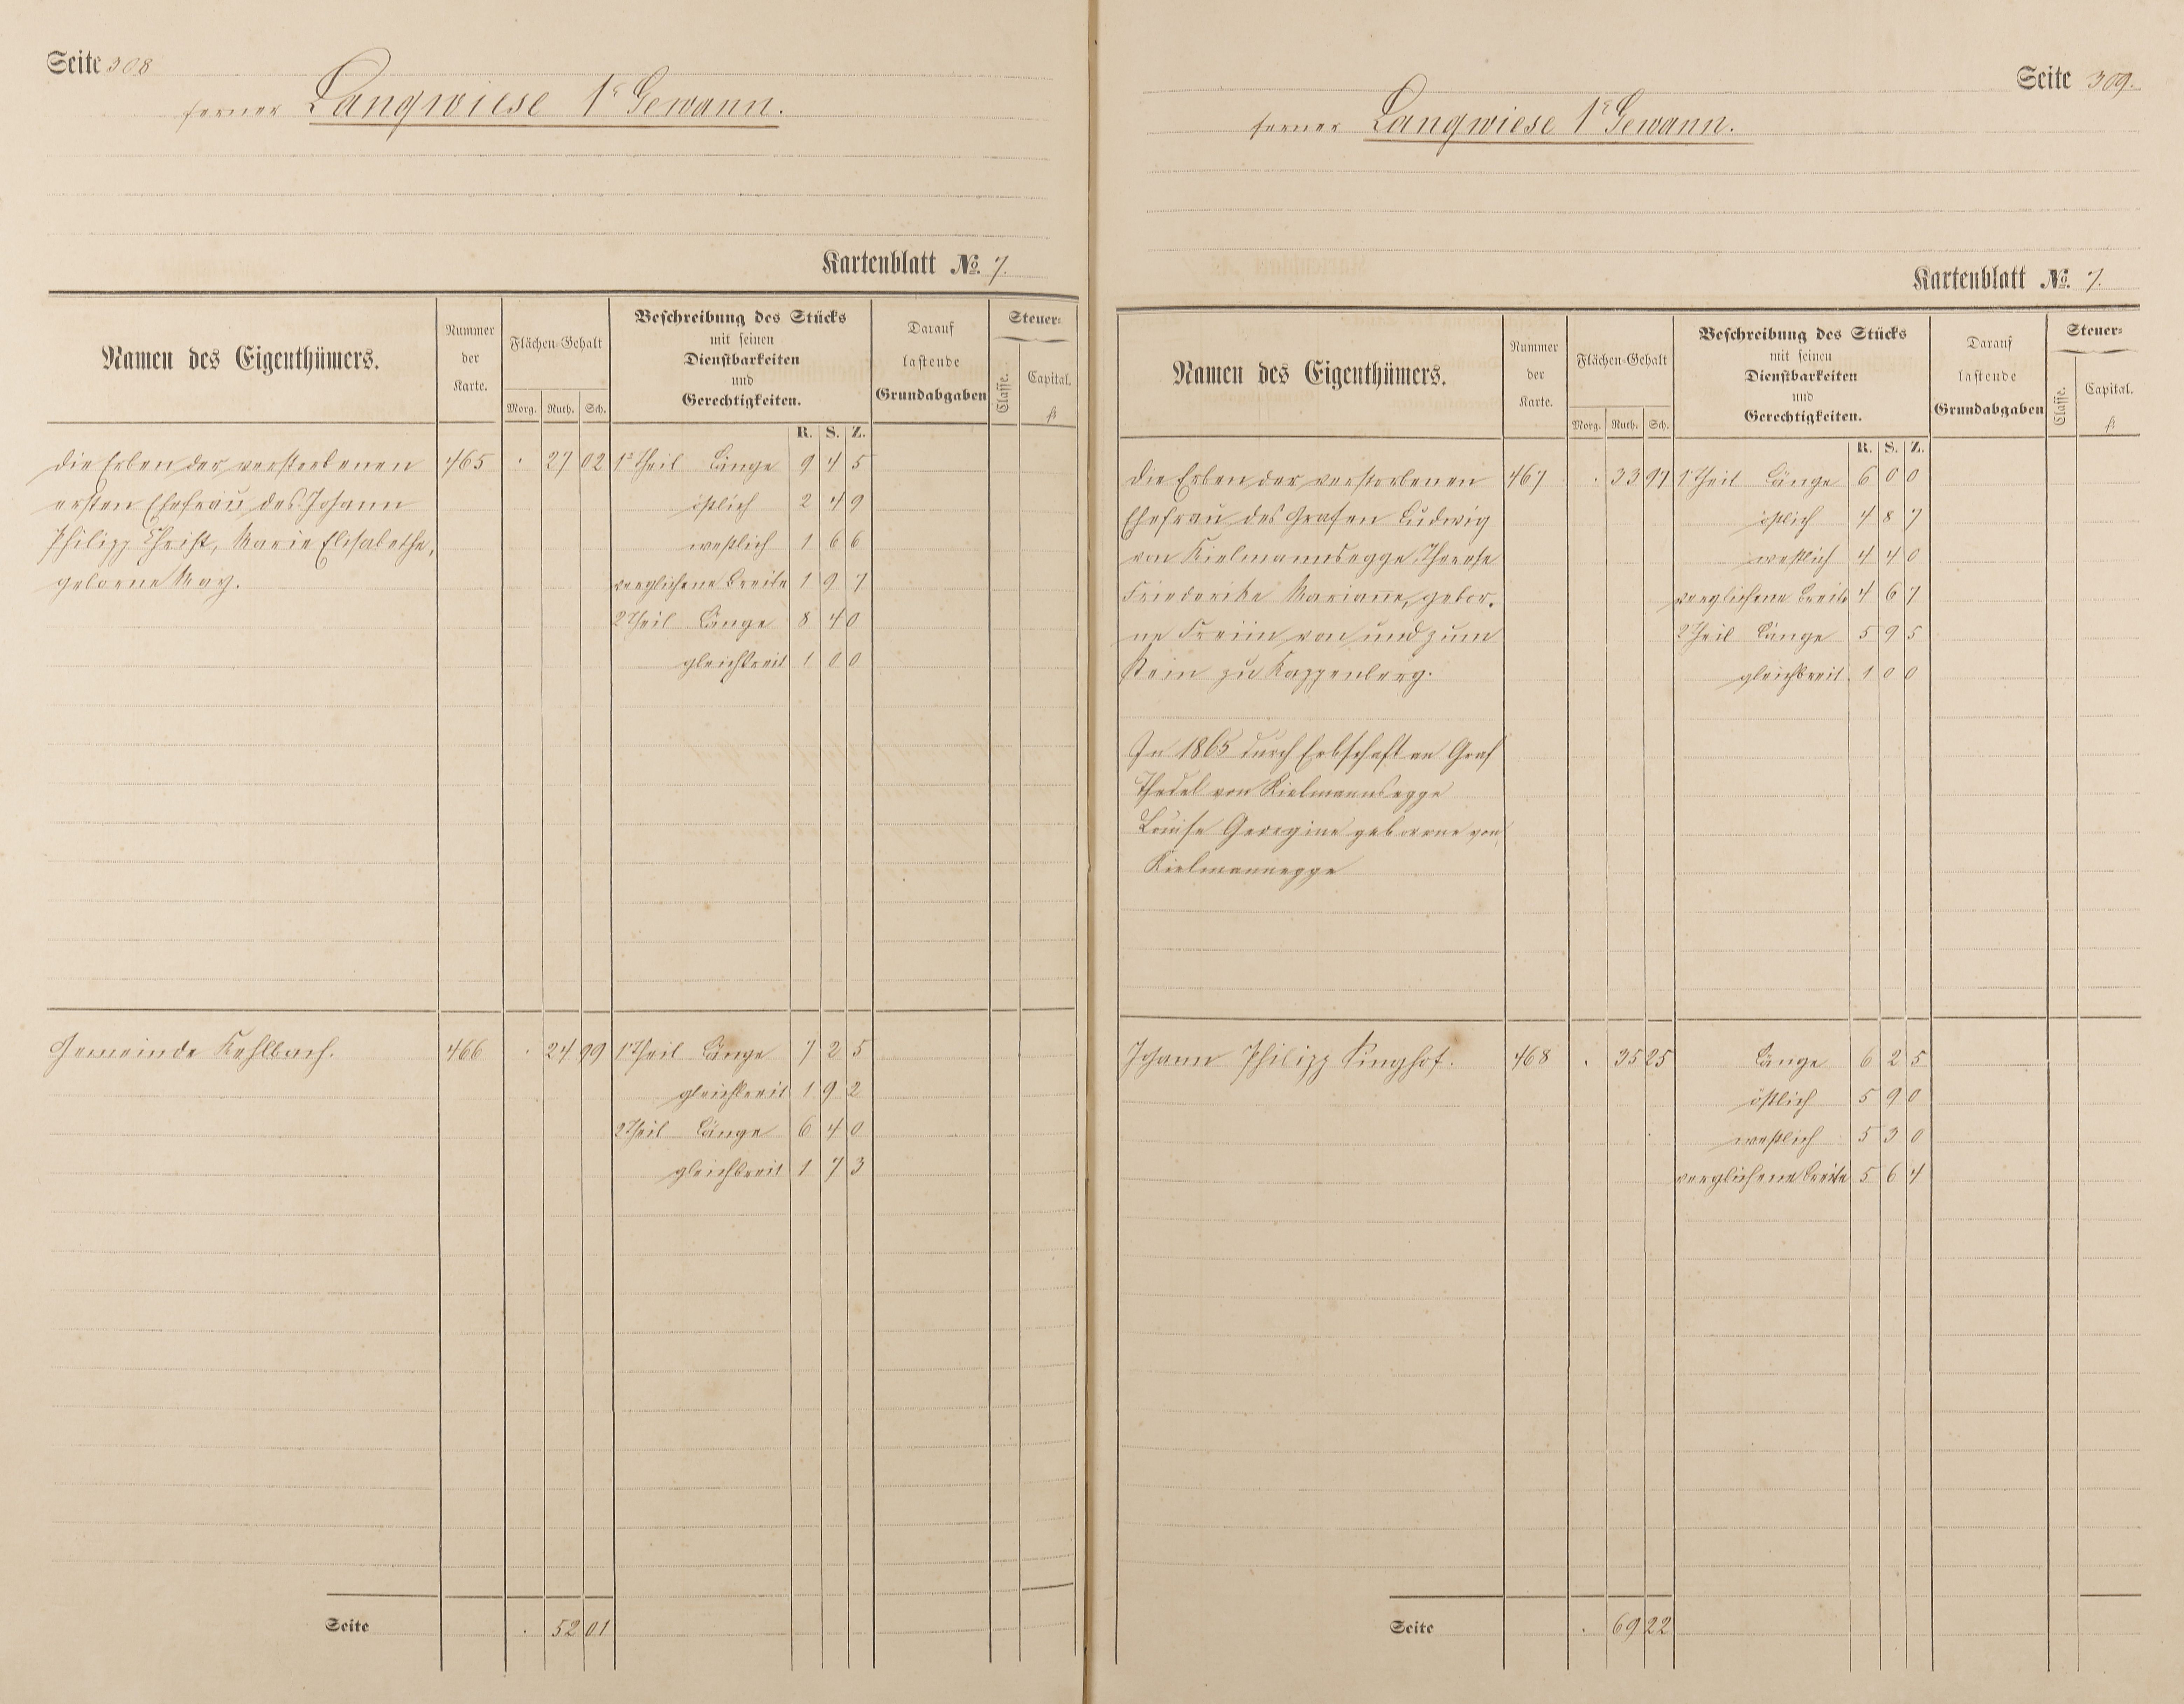 Seite 308
ferner Langwiese 1r Gewann.
Kartenblatt No. 7.
Namen des Eigenthümers.
Nummer der Karte.
Flächen-Gehalt
Morg. Ruth. Sch.
Beschreibung des Stücks
mit seinen
Dienstbarkeiten
und
Gerechtigkeiten.
Darauf
lastende
Grundabgaben
Steuer-
Classe.
Capital.
fl.
R. S. Z.
die Erben der verstorbenen 465 . 27 02 1r Theil Länge 9 4 5
ersten Ehefrau des Johann östlich 2 4 9
Philipp Christ, Marie Elisabethe, westlich 1 6 6
geborne May. verglichene Breite 1 9 7
2 Theil Länge 8 4 0
gleichbreit 1 0 0
Gemeinde Kehlbach. 466 . 24 99 1 Theil Länge 7 2 5
gleichbreit 1 9 2
2 Theil Länge 6 4 0
gleichbreit 1 7 3
Seite . 52 01
Seite 309.
ferner Langwiese 1r Gewann.
Kartenblatt No. 7.
Namen des Eigenthümers.
Nummer der Karte.
Flächen-Gehalt
Morg. Ruth. Sch.
Beschreibung des Stücks
mit seinen
Dienstbarkeiten
und
Gerechtigkeiten.
Darauf
lastende
Grundabgaben
Steuer-
Classe.
Capital.
fl.
R. S. Z.
Die Erben der verstorbenen 467 . 33 97 1 Theil Länge 6 0 0
Ehefrau des Grafen Ludwig östlich 4 8 7
von Kielmannsegge, Therese westlich 4 4 0
Friederike Marianne, gebor. verglichene Breite 4 6 7
ne Freiin von und zum 2 Theil Länge 5 9 5
Stein zu Kappenberg. gleichbreit 1 0 0
In 1865 durch Erbschaft an Graf
Thedel von Kielmannsegge
Louise Georgine geborene von
Kielmannegge
Johann Philipp Singhof. 468 . 35 25 Länge 6 2 5
östlich 5 9 0
westlich 5 3 0
verglichene Breite 5 6 4
Seite . 69 22